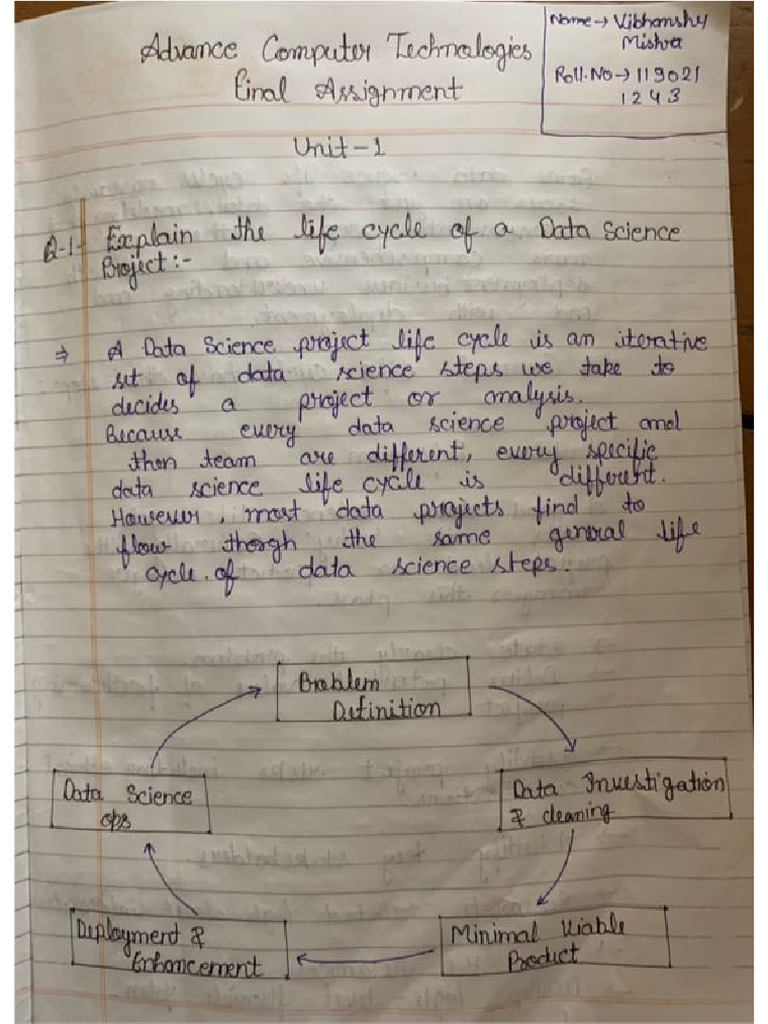 Name → Vibhanshy
Mishra
Roll.No → 119021
1243
Advance Computer Technologies
Final Assignment
Unit - 1
Q-1- Explain the life cycle of a Data Science
Project :-
⇒ A Data Science project life cycle is an iterative
set of data science steps we take to
decides a project or analysis.
Because every data science project and
then team are different, every specific
data science life cycle is different.
However, most data projects find to
flow thorgh the same general life
cycle. of data science steps.
Problem
Definition
Data Science
ops
Data Investigation
& cleaning
Deployment &
Enhancement
Minimal Viable
Product